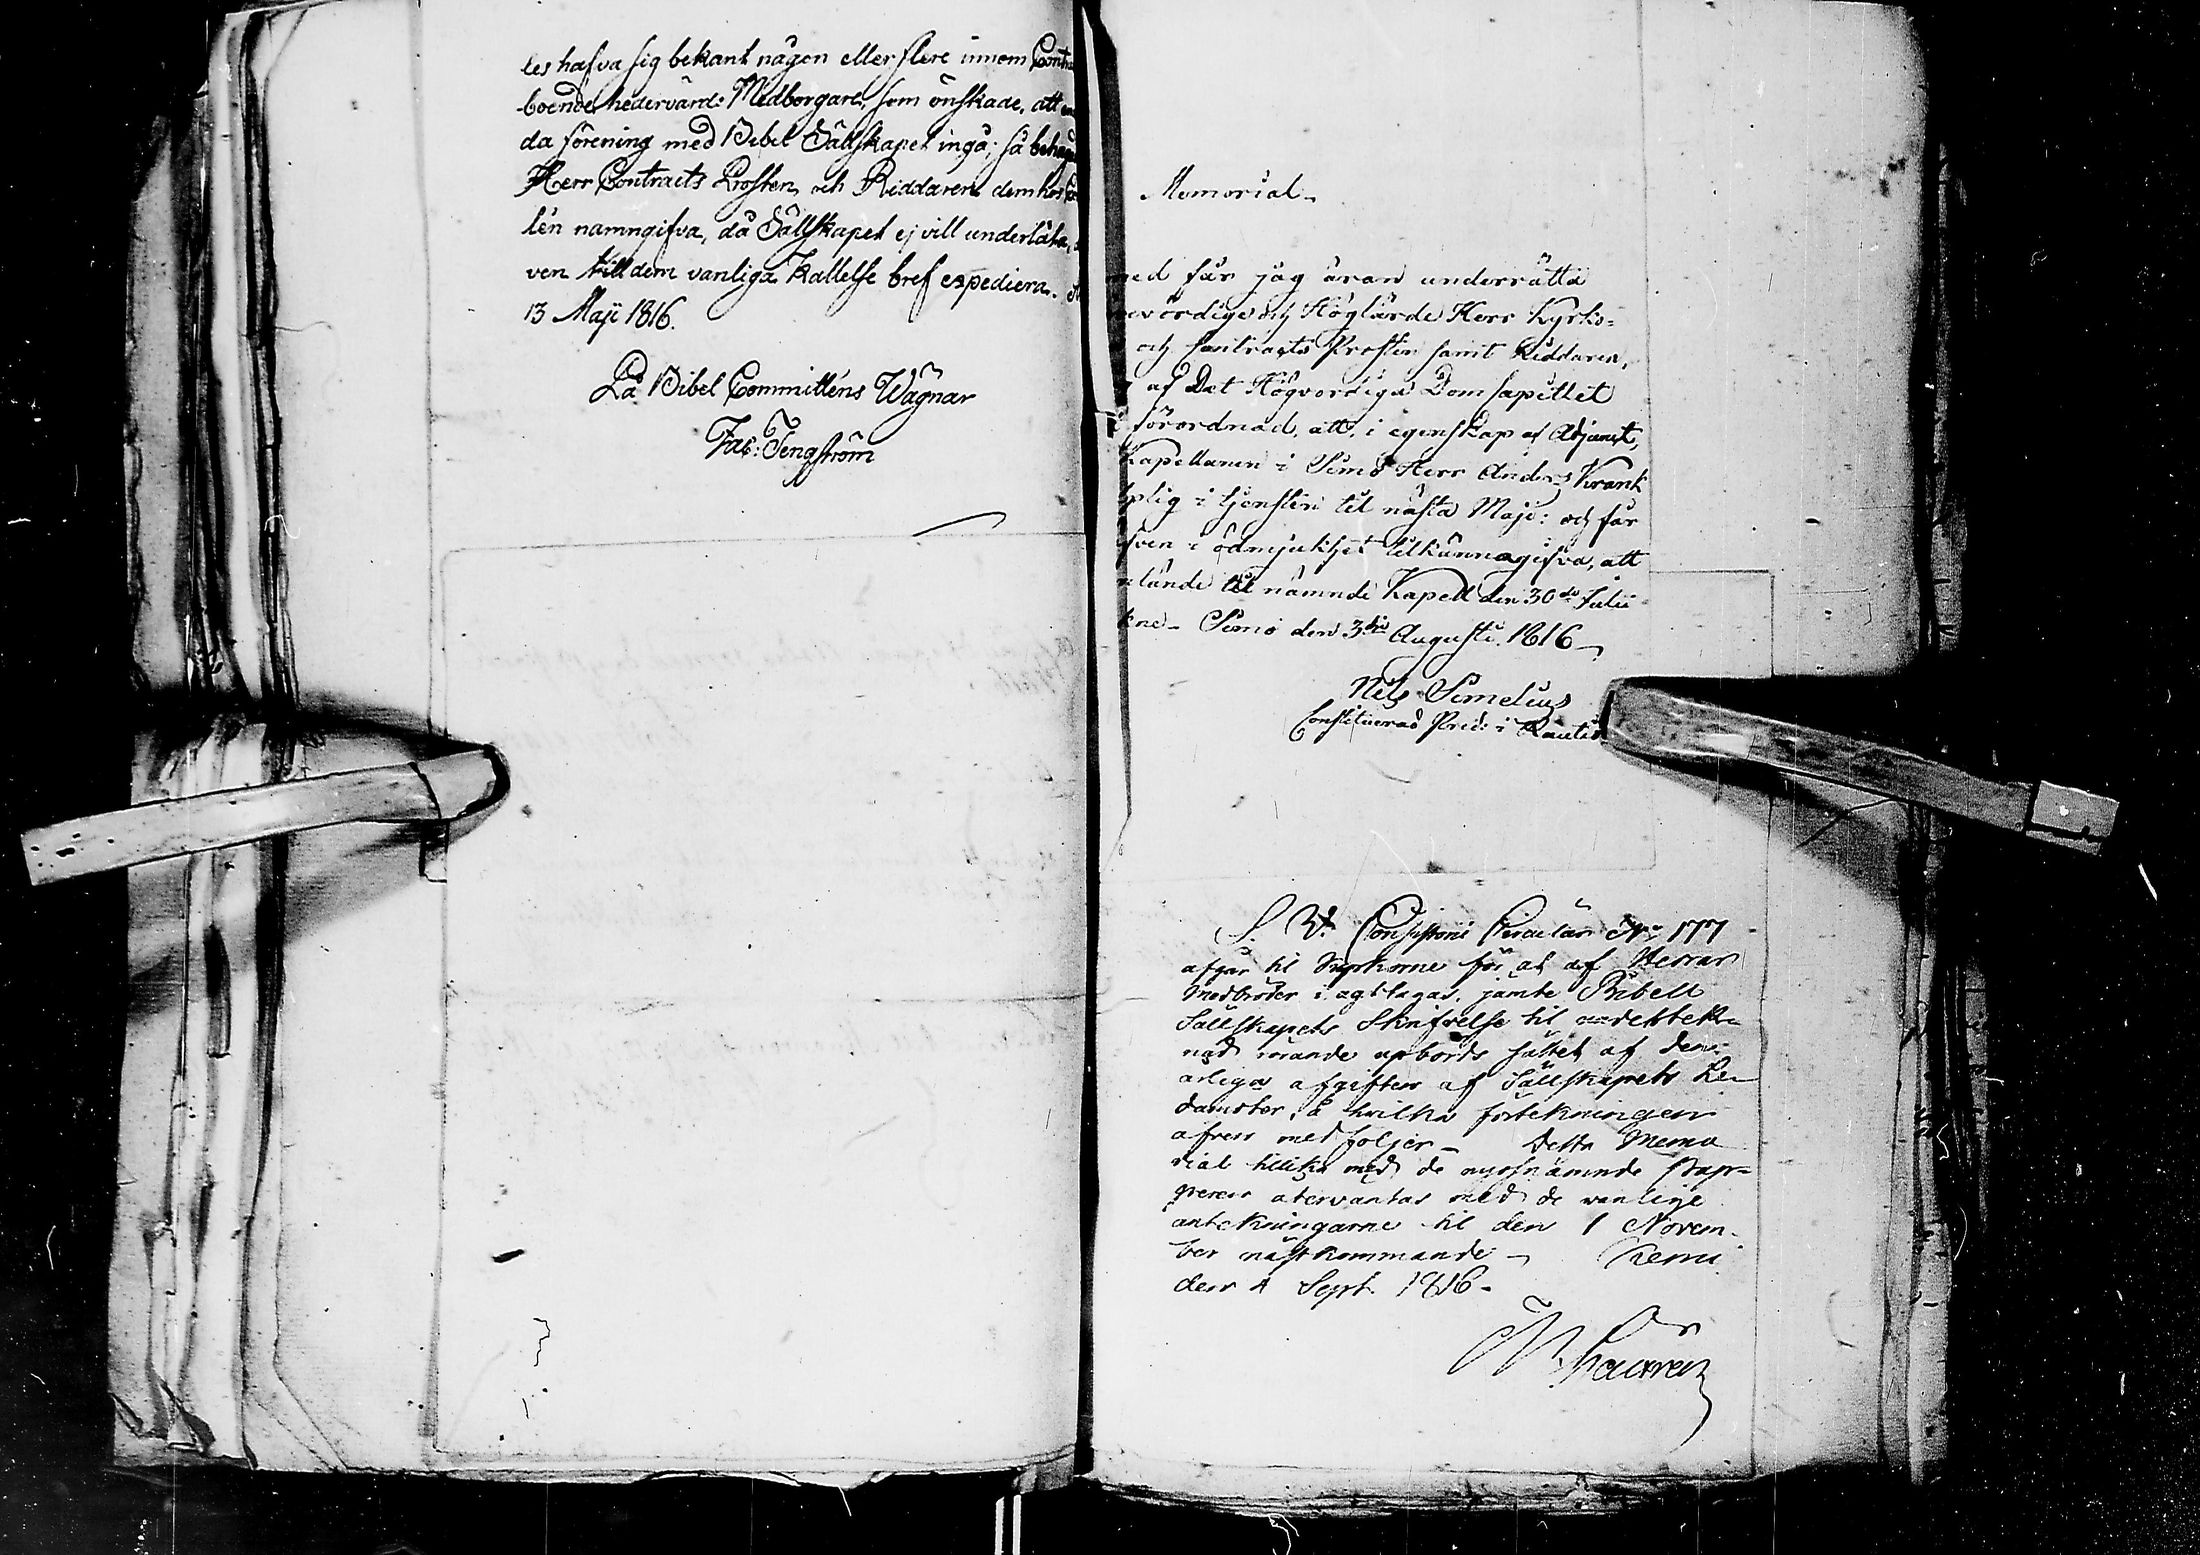 les hafva sig bekant någon eller flere innom Contr
boende hedervärd: Medborgare, som önskade, att
da förening med Bibel Sällskapet ingå; så behag
Herr Contracts Prosten och Riddaren dem hos
lén namngifva, då Sällskapet ej vill underlåta,
ven till dem vanliga Kallelse bref expediera.
13 Maji 1816.
På Bibel Committéns Wägnar
Jac: Tengström
Memorial
med får jag äran underrätta
vördige och Höglärde Herr Kyrko-
och Contracts Prosten samt Riddaren,
af Det Högvördiga Domcapitlet
förordnad, att, i egenskap af Adjunct,
Kapellanen i Simo Herr Anders Krank
i tjensten til nästa Maji: och får
fven i ödmjukhet tilkännagifva, att
lände til nämnde Kapell den 30de Julii
Simo den 3tie Augusti 1816
Nils Simelius
Constituerad Pred: i Rautio
S. V. Consistorii Circulär No 177
afgår til Syskorne för at af Herrar
Medbröder i agt tagas, jämte Bibell
Sällskapets Skrifvelse til undertek-
nad rörande upbörds sättet af den
årliga afgiften af Sällskapets Le-
damöter, å hvilka förtekningen
äfven medföljer - Detta Memo
rial tillika med de nyssnämnde Pap-
peren återväntas med de vanlige
antekningarne til den 1 Novem-
ber nästkommande - Kemi
den 4 Sept. 1816.